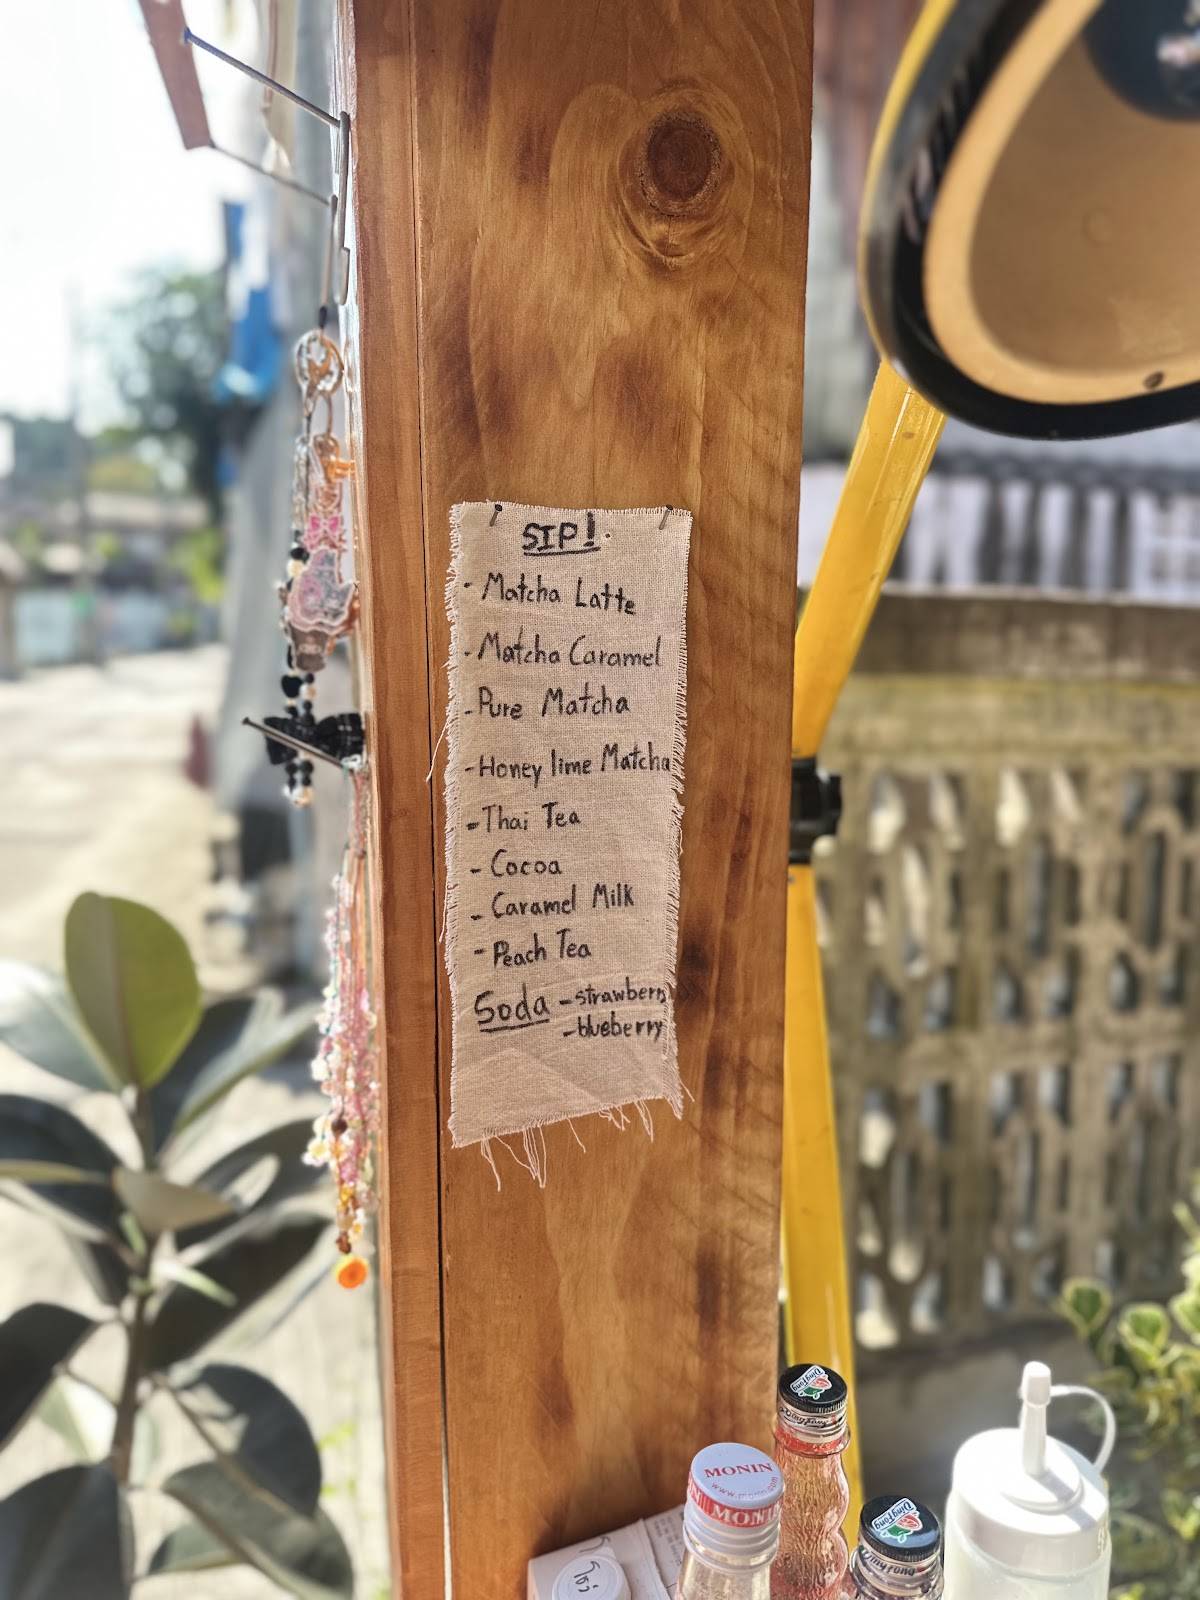 SIP!
- Matcha Latte
- Matcha Caramel
- Pure Matcha
- Honey lime Matcha
- Thai Tea
- Cocoa
- Caramel Milk
- Peach Tea
Soda - strawberry
- blueberry
DingFong
MONIN
MONIN
DingFong